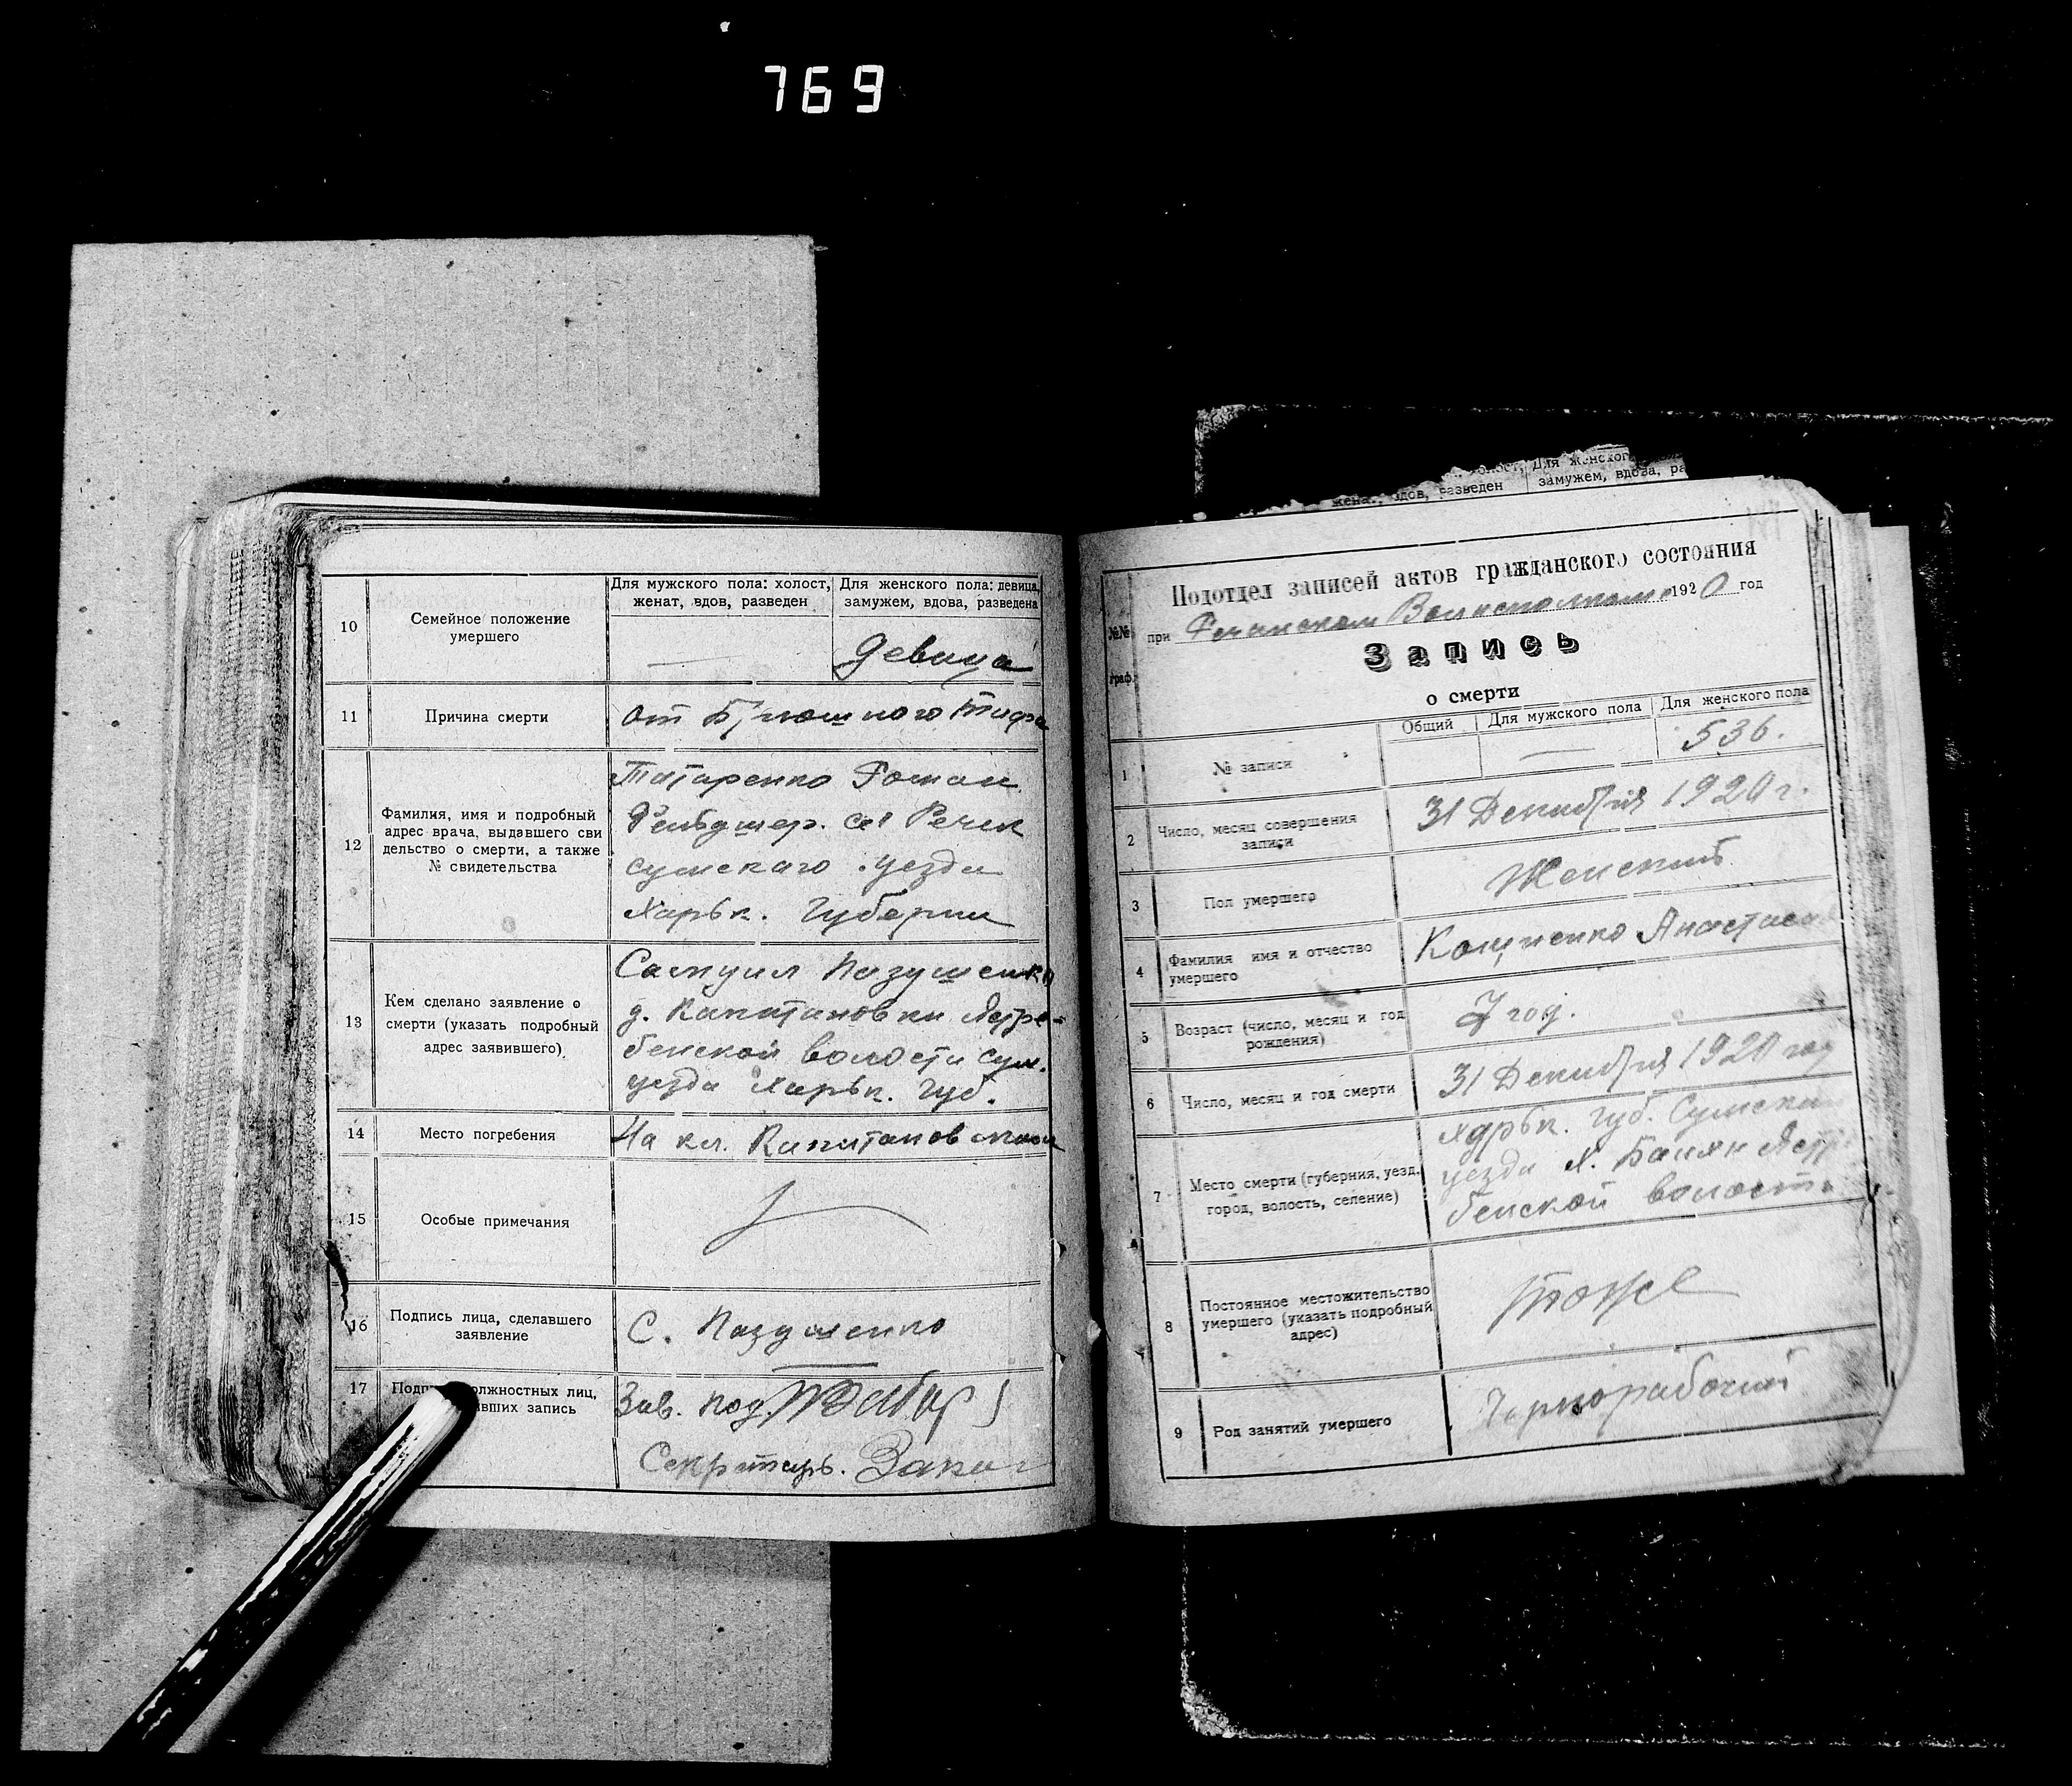 769
10
Семейное положение
умершего
Для мужского пола: холост,
женат, вдов, разведен
Для женского пола: девица,
замужем, вдова, разведена
девица
11
Причина смерти
от Брюшного Тифа
12
Фамилия, имя и подробный
адрес врача, выдавшего сви
дельство о смерти, а также
№ свидетельства
Татаренко Роман
Фельдшер. сел Речек
сумскаго уезда
Харьк. Губернии
13
Кем сделано заявление о
смерти (указать подробный
адрес заявившего)
Самуил Пазушенко
д. Капитановки Ястре-
бенской волости Сум.
уезда Харьк. Губ.
14
Место погребения
На кл. Капитановском
15
Особые примечания
16
Подпись лица, сделавшего
заявление
С. Пазушенко
17
должностных лиц,
вших запись
Зав. Под
Секретарь.
холост, Для женског
жена, вдов, разведен
замужем, вдова, ра
№№
граф.
Подотдел записей актов гражданского состояния
при Речанском Волисполкоме 1920 год
Запись
о смерти
Общий
Для мужского пола
Для женского пола
1
№ записи
536.
2
Число, месяц совершения
записи
31 Декабря 1920 г.
3
Пол умершего
Женский
4
Фамилия имя и отчество
умершего
Анастасия
5
Возраст (число, месяц и год
рождения)
7 год.
6
Число, месяц и год смерти
31 Декабря 1920 год
7
Место смерти (губерния, уезд,
город, волость, селение)
Харьк. Губ. Сумскаго
уезда х. Ястре
бенской волости
8
Постоянное местожительство
умершего (указать подробный
адрес)
тоже
9
Род занятий умершего
Чернорабочий